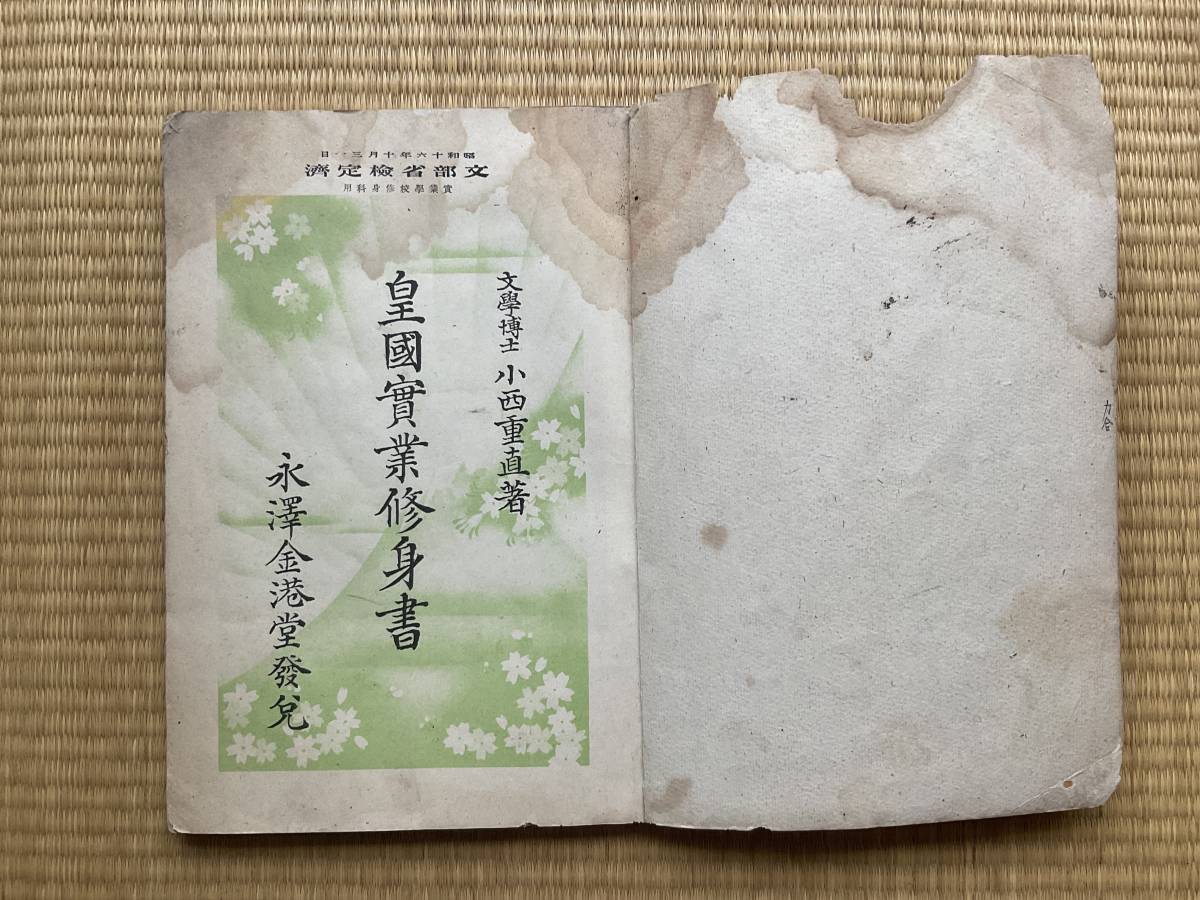 昭和十六年十月三 日
文部省檢定濟
實業學校修身科用
文學博士 小西重直著
皇國實業修身書
永澤金港堂發兌